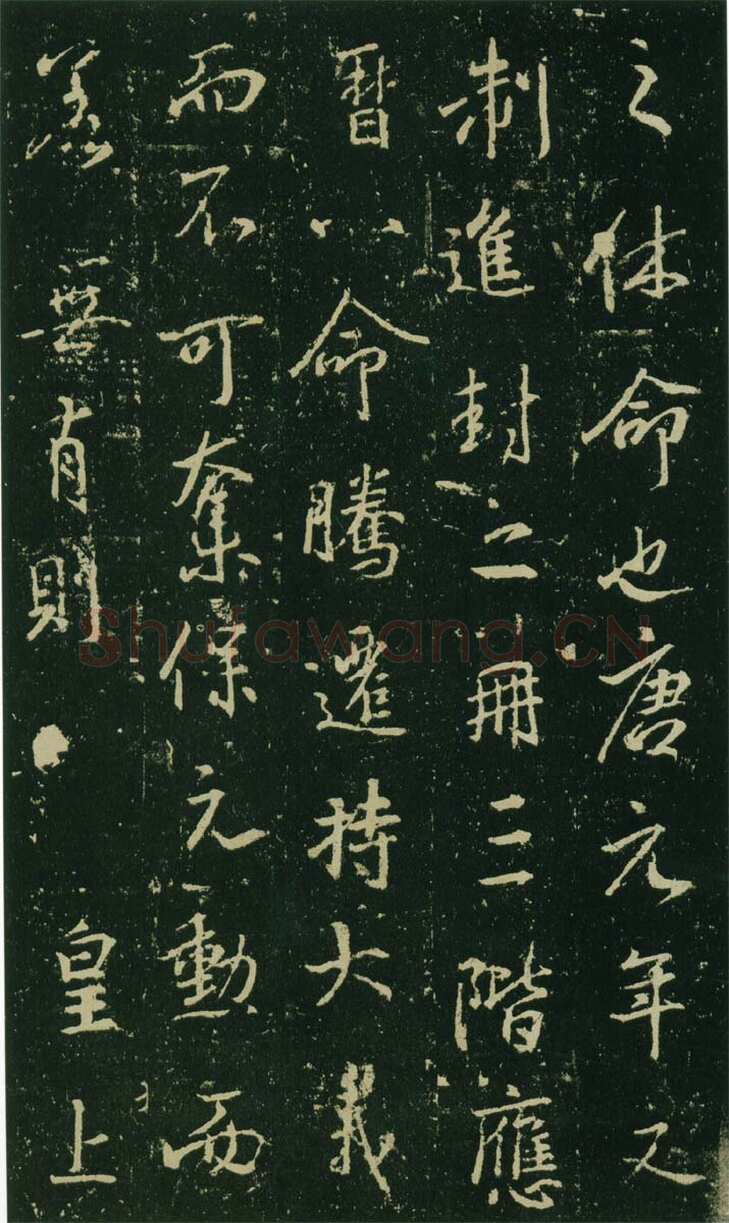 之休命也唐元年又
制進封二冊三階應
暦八命騰遷持大義
而不可奪保元勳而
無有則皇上
Shufawang.CN